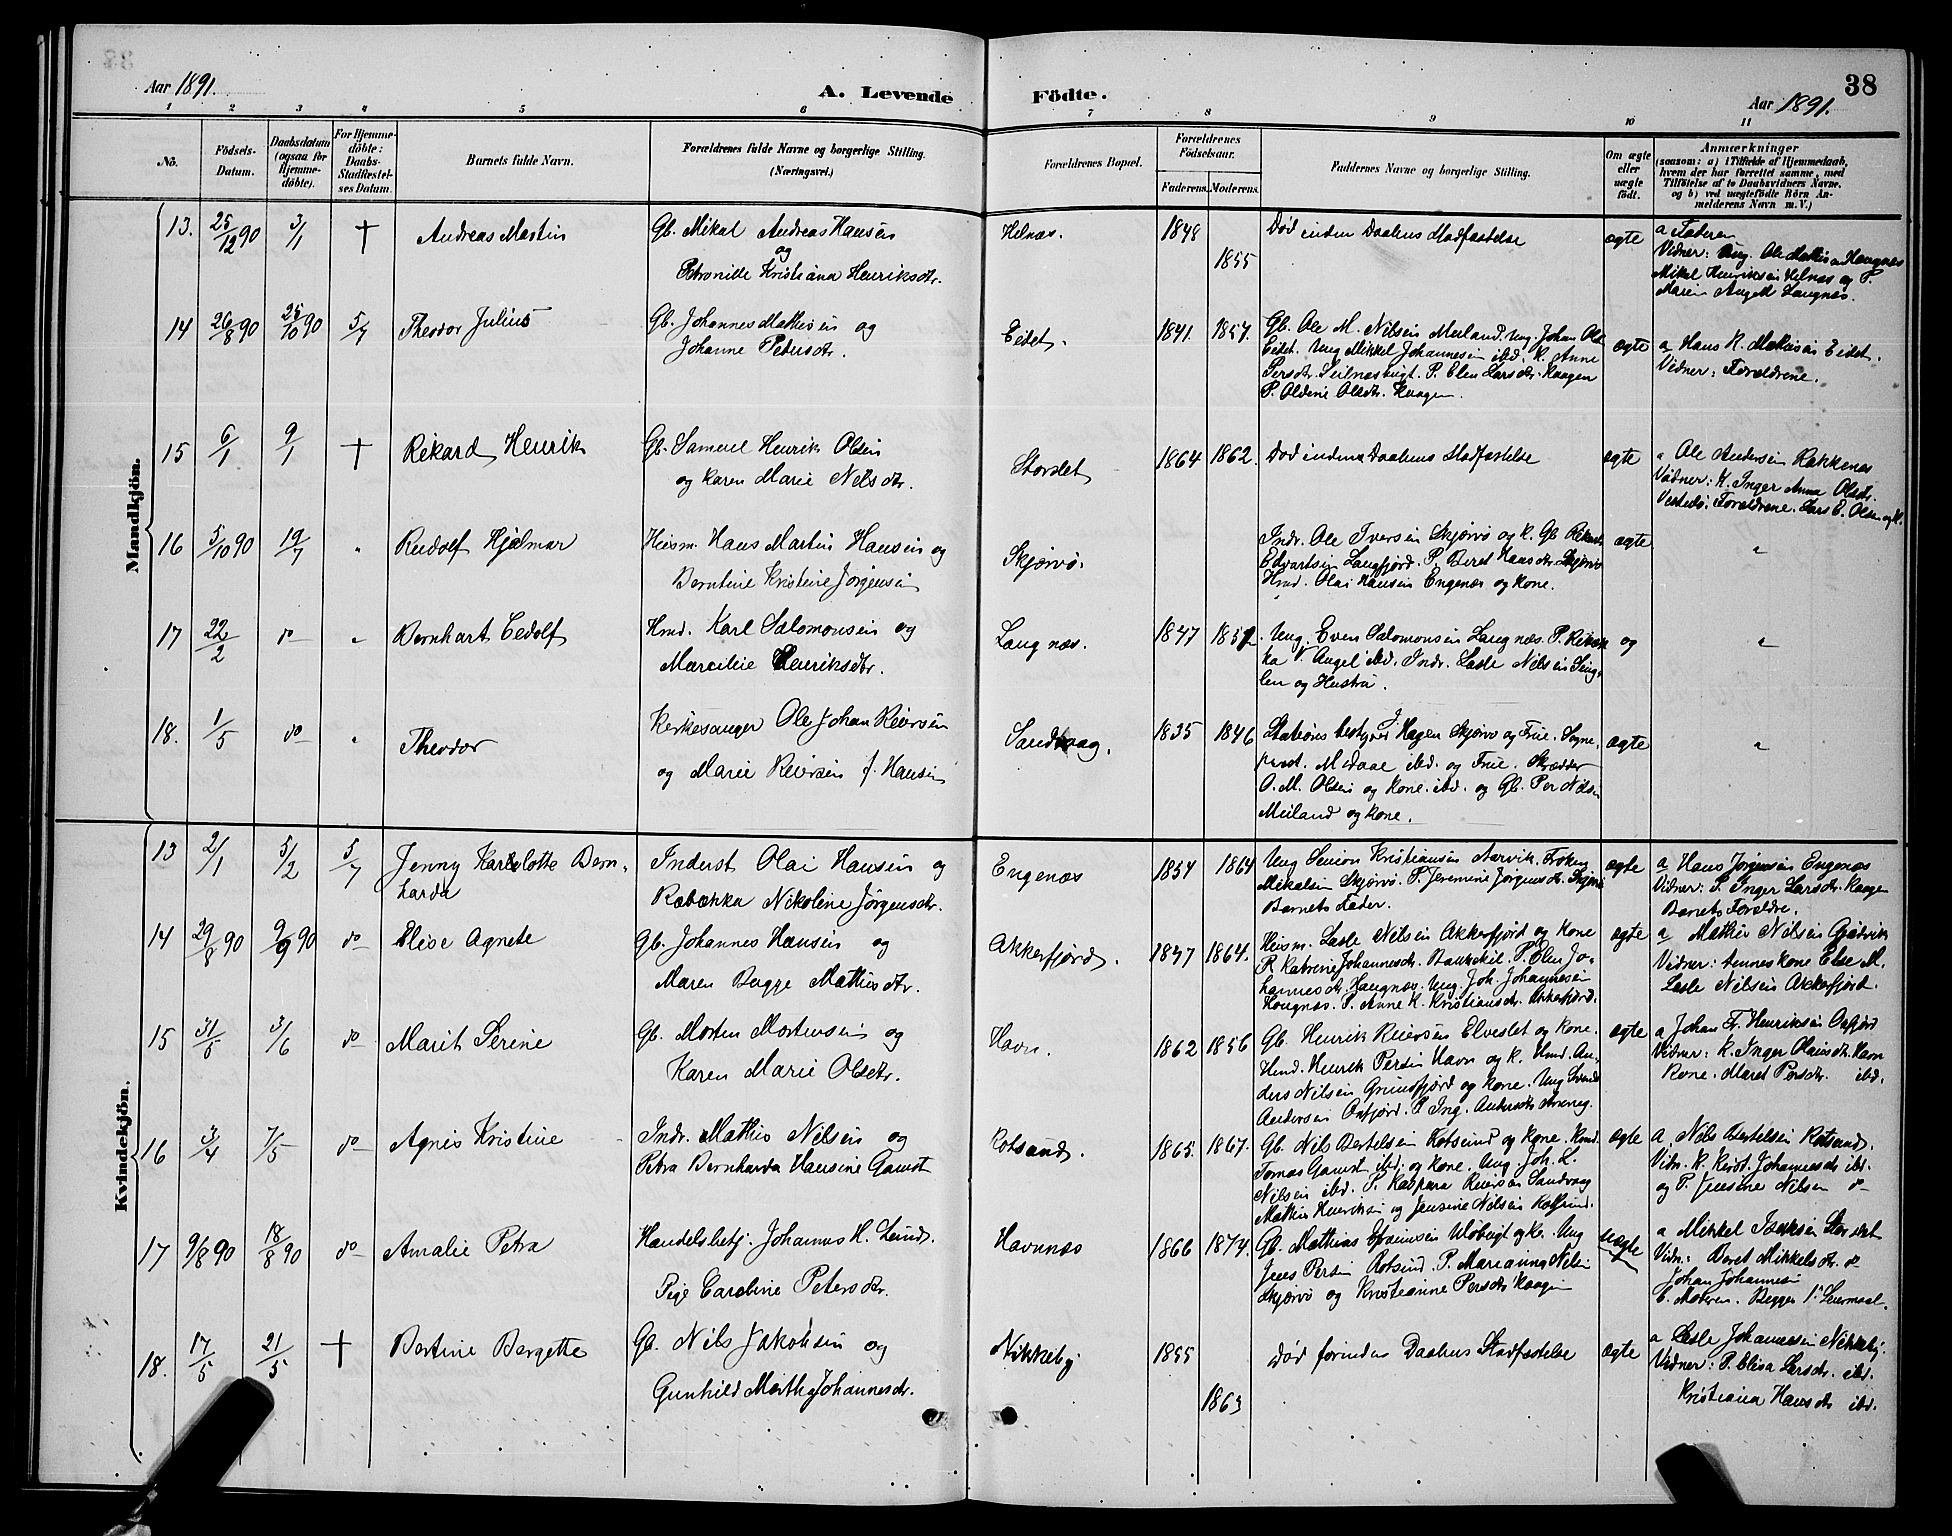 38
Aar 1891.
A. Levende Födte.
Aar 1891.
1 2 3 4 5 6 7 8 9 10 11
No.
Födsels-Datum.
Daabsdatum (ogsaa for Hjemme-döbte).
For Hjemme-döbte: Daabs-Stadfæstelses Datum.
Barnets fulde Navn.
Forældrenes fulde Navne og borgerlige Stilling. (Næringsvei.)
Forældrenes Bopæl.
Forældrenes Födselsaar.
Faderens. Moderens.
Faddernes Navne og borgerlige Stilling.
Om ægte eller uægte født.
Anmærkninger
(saasom: a) i Tilfælde af Hjemmedaab, hvem der har forrettet samme, med Tilföielse af to Daabsvidners Navne. og b) ved uægtefödte Börn Anmelderens Navn m. V.)
Mandkjön.
13. 25/12 90 3/1 + Andreas Martin
Gb. Mikal Andreas Hansen
og
Petronille Kristiana Henriksdtr.
Helnæs. 1848 1855
Død inden Daabens Stadfæstelse
ægte
a Faderen
Vidner: Ung. Ole Haugnæs
Mikel Henriksen Helnæs og P.
Maren Angell Laugnæs.
14 26/8 90 25/10 90 5/7 Theodor Julius
Gb. Johannes Mathisen og
Johanne Petersdtr.
Eidet. 1841. 1857.
Gb. Ole M. Nilsen Meiland. Ung. Johan Ols
Eidet. Ung Mikkel Johannesen ibd. K. Anne
Persdtr. Seilnæsbugt. P. Elen Larsdtr. Kaagen
P. Oldine Olsdtr. Kaagen.
ægte
a Hans K. Mathisen Eidet.
Vidner: Forældrene.
15 6/1 9/1 + Rikard Henrik
Gb. Samuel Henrik Olsen
og Karen Marie Nilsdtr.
Storslet 1864 1862.
Død inden Daabens Stadfæstelse
ægte
a Ole Andersen Hakkenæs
Vidner: K. Inger Anna Olsdtr.
Forældrene. Lars E. Olsen og K.
16 5/10 90 19/7 " Rudolf Hjalmar
Huism. Hans Martin Hansen og
Berntine Kristine Jørgensen
Skjørvö.
Indr. Ole Iversen Skjørvö og K. Gb. Rikard
Edvartsen Langfjord. P. Beret Hansdtr. Skjørvö
Hmd. Olai Hansen Engenæs og kone.
ægte
"
17 22/2 do " Bernhart Eedolf
Hmd. Karl Salomonsen og
Marcilie Henriksdtr.
Laugnæs. 1847 1852.
Ung. Even Salomonsen Laugnæs. P. Rebek
ka V. Angel ibd. Indr. Lasle Nilsen
og Hustru.
og
"
18. 1/5 do " Theodor
Kirkesanger Ole Johan Reiersen
og Marie Reiersen f. Hansen
Sandvaag. 1835 1846
Stations bestyrer J. Hagen Skjørvö og Frue. Sogne-
præst. Mdaae ibd. og Frue. Skrædder
O. M. Olsen og Kone. ibd. og Gb. Per Nilsen
Meiland og kone.
ægte
"
Kvindekjön.
13 2/1 5/2 5/7 Jenny Karlslotte Bern-
harda
Inderst Olai Hansen og
Rebekka Nikoline Jørgensdtr.
Engenæs 1857 1864
Ung Simon Kristiansen Narvik.
Mikalsen Skjørvö. P. Jeremine Jørgensdtr. Skjør
Barnets Fader.
ægte
a Hans Jørgensen Engenæs
Vidner: P. Inger Larsdtr. Kaagen
Barnets Forældre.
14 29/8 90 9/9 90 do Elise Agnete
Gb. Johannes Hansen og
Maren Bugge Mathisdtr.
Akkerfjord. 1847 1864.
Huism. Lasle Nilsen Akkerfjord og Kone
P. Katrine Johannesdtr. Bankekil. P. Elen Jo-
hannesdtr. Haugnæs. Ung. Joh. Johannesen
Haugnæs. P. Anne K. Kristiansdtr. Akkerfjord.
ægte
a Mathis Nilsen Gjøvik
Vidner: hennes kone Else M.
Lasle Nilsen Akkerfjord.
15 31/5 3/6 do Marit Serine
Gb. Morten Mortensen og
Karen Marie Olsdtr.
Havn. 1862 1856
Gb. Henrik Reiersen Elveslet og Kone.
Hmd. Henrik Persen Havn og K. Hmd. An-
ders Nilsen Grundfjord og Kone. Ung
Andersen Oxfjord. P. Ing. Andersdtr
ægte
a Johan F. Henriksen Oxfjord
Vidner: K. Inger Olaisdtr. Havn
Kone. Maret Persdtr. ibd.
16 3/4 7/5 do Agnes Kristine
Indr. Mathis Nilsen og
Petra Bernharda Hansine Gamst
Rotsund. 1865. 1867.
Gb. Nils Bertelsen Rotsund og Kone. Hmd.
Tomas Gamst ibd. og Kone. Ung Joh. L.
Nilsen ibd. P. Kaspara Reiersen Sandvaag
Mathis Henriksen og Jensine Nilsen Rotsund.
ægte
a. Nils Bertelsen Rotsund.
Vidn. K. Kerst. Johannesdtr ibd.
og P. Jensine Nilsen do
17 9/8 90 18/8 90 do Amalie Petra
Handelsbetj. Johannes H. Lund.
Pige Caroline Petersdtr.
Havnnæs 1866 1874
Gb. Mathias Efraimsen Uløbugt og Ke. Ung
Jens Persen Rotsund. P. Marianna Nilsen
Skjørvö og Kristianne Persdtr Kaagen
uægte
a Mikkel Isaksen Storslet
Vidn: Beret Mikkelsdtr. do
Johan Johannesen
b. Moderen. Begges 1ste Leiermaal.
18. 17/5 21/5 + Bertine Bergette
Gb. Nils Jakobsen og
Gunhild Martha Johannesdtr.
Nikkeby 1855 1863
Død forinden Daabens Stadfæstelse
ægte
a Lasle Johannesen Nikkeby.
Vidner: P. Elisa Larsdtr. ibd.
Kristiana Hansdtr ibd.